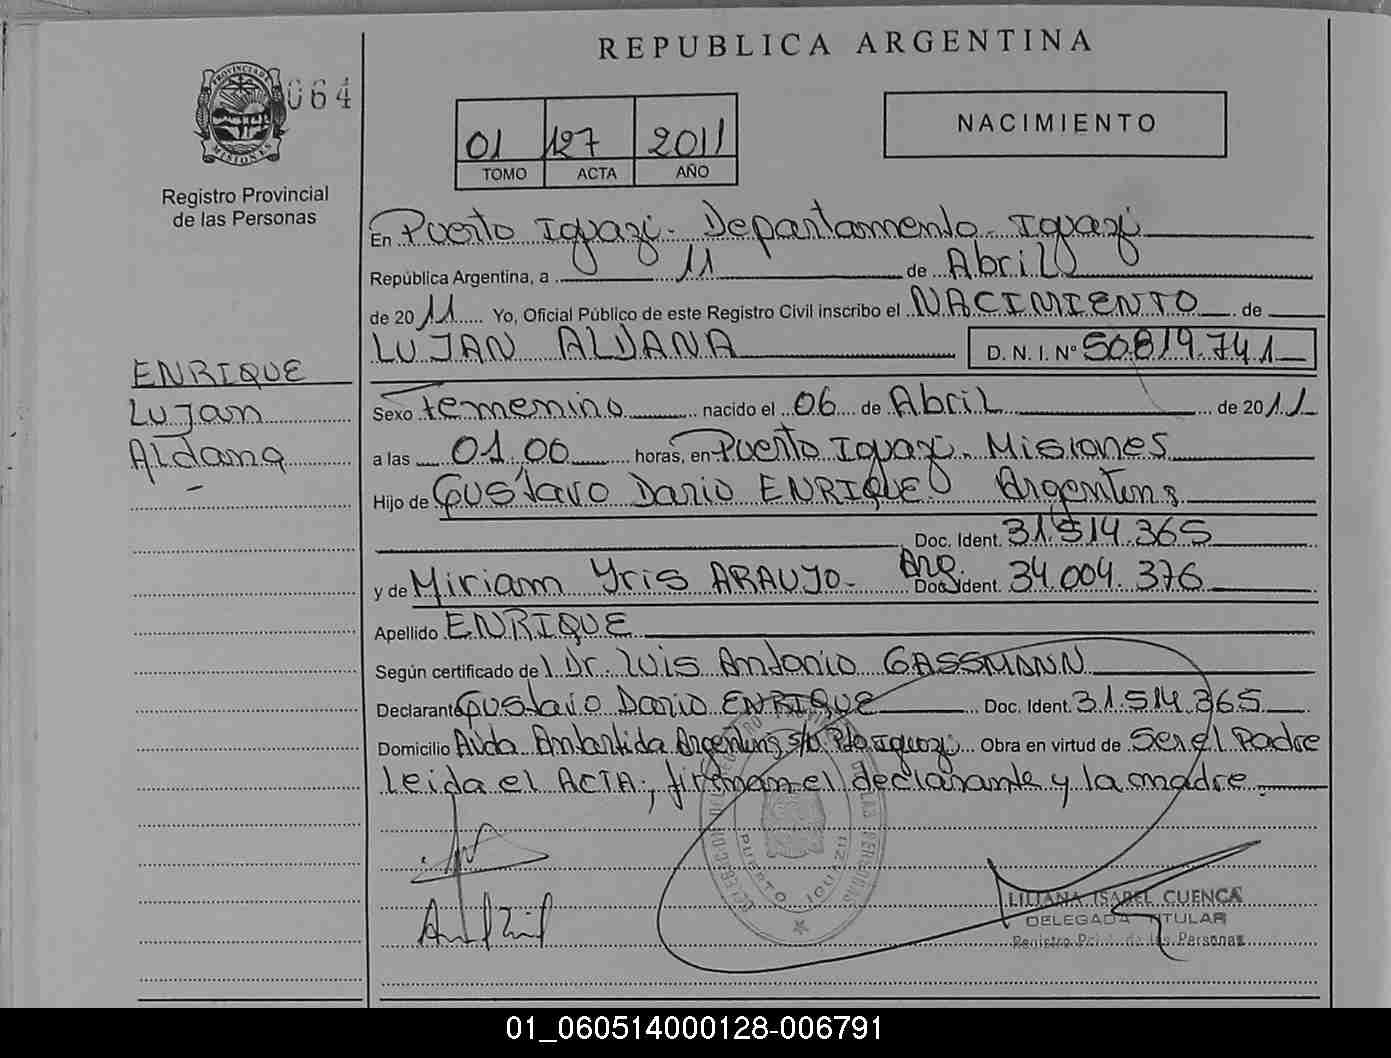 REPUBLICA ARGENTINA
PROVINCIA DE
MISIONES
064
Registro Provincial
de las Personas
01 127 2011
TOMO ACTA AÑO
NACIMIENTO
En Puerto Iguazú - Departamento - Iguazú
República Argentina, a 11 de Abril
de 2011 Yo, Oficial Público de este Registro Civil inscribo el NACIMIENTO de
LUJAN ALDANA D. N. I. Nº 50.819.741
ENRIQUE
Lujan
Aldana
Sexo Femenino nacido el 06 de Abril de 2011
a las 01.06 horas, en Puerto Iguazú. Misiones
Hijo de Gustavo Dario ENRIQUE Argentina
Doc. Ident. 31.514.365
y de Miriam Yris ARAUJO - Arg. Doc. Ident. 34.004.376
Apellido ENRIQUE
Según certificado de Dr. Luis Antonio GASSMANN
Declarante Gustavo Dario ENRIQUE Doc. Ident. 31.514.365
Domicilio Avda Antartida Argentina s/n Pto Iguazú Obra en virtud de Ser el Padre
Leida el ACTA; firman el declarante y la madre.
PUERTO IGUAZU
LILIANA ISABEL CUENCA
DELEGADA TITULAR
Registro Prov. de las Personas
01_060514000128-006791